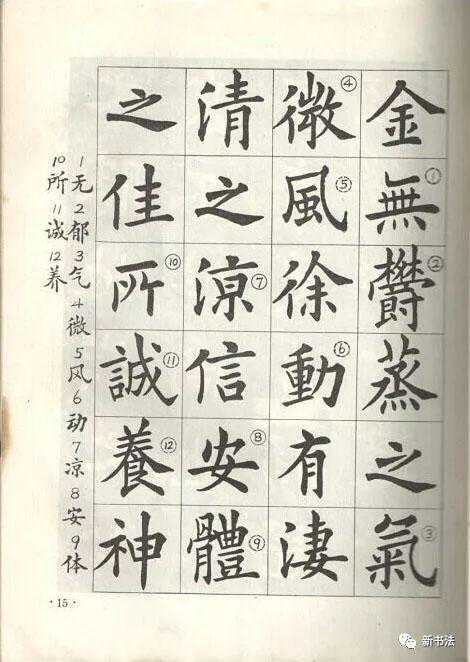 金無①欝②蒸之氣③
微④風⑤徐動⑥有淒
清之涼⑦信安⑧體⑨
之佳所⑩誠⑪養⑫神
1无2郁3气4微5风6动7凉8安9体
10所11诚12养
·15·
新书法